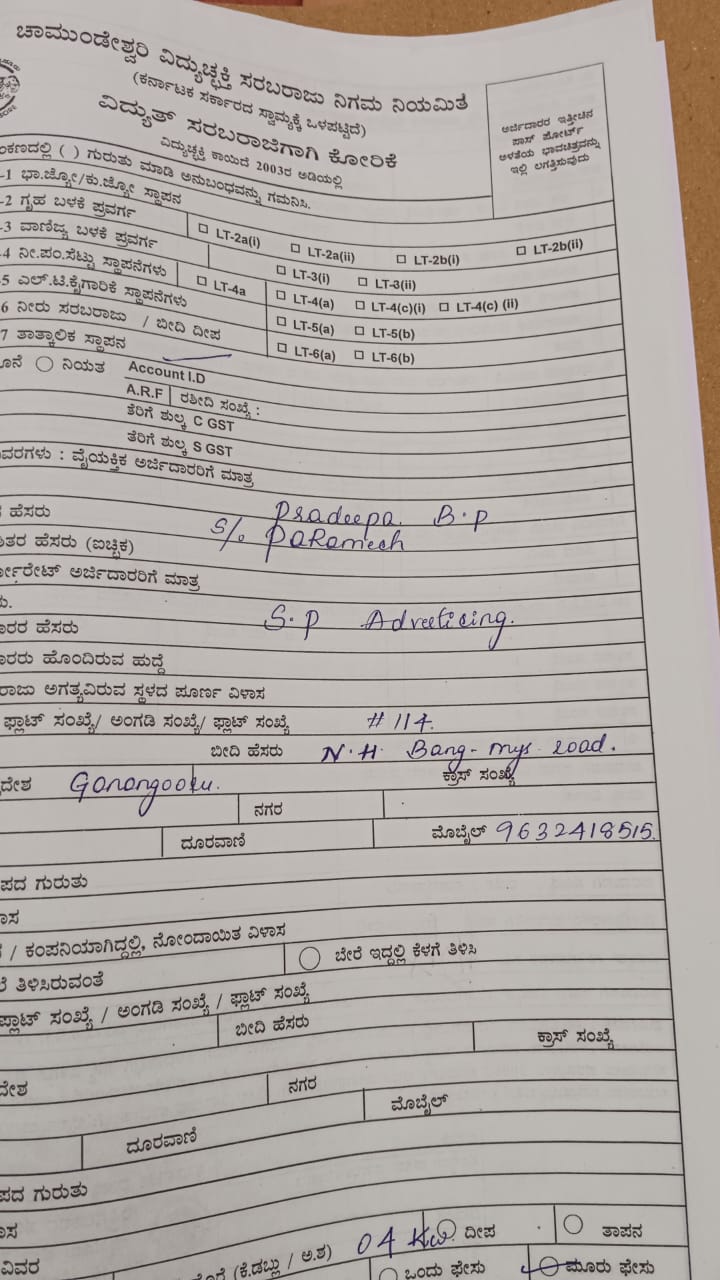 ಚಾಮುಂಡೇಶ್ವರಿ ವಿದ್ಯುಚ್ಛಕ್ತಿ ಸರಬರಾಜು ನಿಗಮ ನಿಯಮಿತ
(ಕರ್ನಾಟಕ ಸರ್ಕಾರದ ಸ್ವಾಮ್ಯಕ್ಕೆ ಒಳಪಟ್ಟಿದೆ)
ವಿದ್ಯುತ್ ಸರಬರಾಜಿಗಾಗಿ ಕೋರಿಕೆ
ವಿದ್ಯುಚ್ಛಕ್ತಿ ಕಾಯಿದೆ 2003ರ ಅಡಿಯಲ್ಲಿ
ಅರ್ಜಿದಾರರ ಇತ್ತೀಚಿನ
ಪಾಸ್ ಪೋರ್ಟ್
ಅಳತೆಯ ಭಾವಚಿತ್ರವನ್ನು
ಇಲ್ಲಿ ಲಗತ್ತಿಸುವುದು
ಂಕಣದಲ್ಲಿ ( ) ಗುರುತು ಮಾಡಿ ಅನುಬಂಧವನ್ನು ಗಮನಿಸಿ.
-1 ಭಾ.ಜ್ಯೋ/ಕು.ಜ್ಯೋ ಸ್ಥಾಪನ
-2 ಗೃಹ ಬಳಕೆ ಪ್ರವರ್ಗ ☐ LT-2a(i) ☐ LT-2a(ii) ☐ LT-2b(i) ☐ LT-2b(ii)
-3 ವಾಣಿಜ್ಯ ಬಳಕೆ ಪ್ರವರ್ಗ ☐ LT-3(i) ☐ LT-3(ii)
-4 ನೀ.ಪಂ.ಸೆಟ್ಟು ಸ್ಥಾಪನೆಗಳು ☐ LT-4a ☐ LT-4(a) ☐ LT-4(c)(i) ☐ LT-4(c) (ii)
-5 ಎಲ್.ಟಿ.ಕೈಗಾರಿಕೆ ಸ್ಥಾಪನೆಗಳು ☐ LT-5(a) ☐ LT-5(b)
6 ನೀರು ಸರಬರಾಜು / ಬೀದಿ ದೀಪ ☐ LT-6(a) ☐ LT-6(b)
7 ತಾತ್ಕಾಲಿಕ ಸ್ಥಾಪನ
ನಿಯತ Account I.D
A.R.F ರಶೀದಿ ಸಂಖ್ಯೆ :
ತೆರಿಗೆ ಶುಲ್ಕ C GST
ತೆರಿಗೆ ಶುಲ್ಕ S GST
ವರಗಳು : ವೈಯಕ್ತಿಕ ಅರ್ಜಿದಾರರಿಗೆ ಮಾತ್ರ
ಹೆಸರು Pradeepa. B.P
ತರ ಹೆಸರು (ಐಚ್ಛಿಕ) S/o Paramesh
ರ್ಪೋರೇಟ್ ಅರ್ಜಿದಾರರಿಗೆ ಮಾತ್ರ
ಾರರ ಹೆಸರು S.P Adveeticing.
ಾರರು ಹೊಂದಿರುವ ಹುದ್ದೆ
ರಾಜು ಅಗತ್ಯವಿರುವ ಸ್ಥಳದ ಪೂರ್ಣ ವಿಳಾಸ
ಫ್ಲಾಟ್ ಸಂಖ್ಯೆ/ ಅಂಗಡಿ ಸಂಖ್ಯೆ/ ಫ್ಲಾಟ್ ಸಂಖ್ಯೆ # 114.
ಬೀದಿ ಹೆಸರು N.H. Bang-mys road.
ದೇಶ Ganangooru. ಕ್ರಾಸ್ ಸಂಖ್ಯೆ
ನಗರ
ದೂರವಾಣಿ ಮೊಬೈಲ್ 9632418515.
ಪದ ಗುರುತು
ಾಸ
/ ಕಂಪನಿಯಾಗಿದ್ದಲ್ಲಿ, ನೋಂದಾಯಿತ ವಿಳಾಸ
ೆ ತಿಳಿಸಿರುವಂತೆ ಬೇರೆ ಇದ್ದಲ್ಲಿ ಕೆಳಗೆ ತಿಳಿಸಿ
ಪ್ಲಾಟ್ ಸಂಖ್ಯೆ / ಅಂಗಡಿ ಸಂಖ್ಯೆ / ಫ್ಲಾಟ್ ಸಂಖ್ಯೆ
ಬೀದಿ ಹೆಸರು ಕ್ರಾಸ್ ಸಂಖ್ಯೆ
ದೇಶ ನಗರ
ದೂರವಾಣಿ ಮೊಬೈಲ್
ಪದ ಗುರುತು
ಾಸ
ವಿವರ (ಕೆ.ಡಬ್ಲು / ಅ.ಶ) 04 Kw ದೀಪ ತಾಪನ
ಒಂದು ಫೇಸು ಮೂರು ಫೇಸು